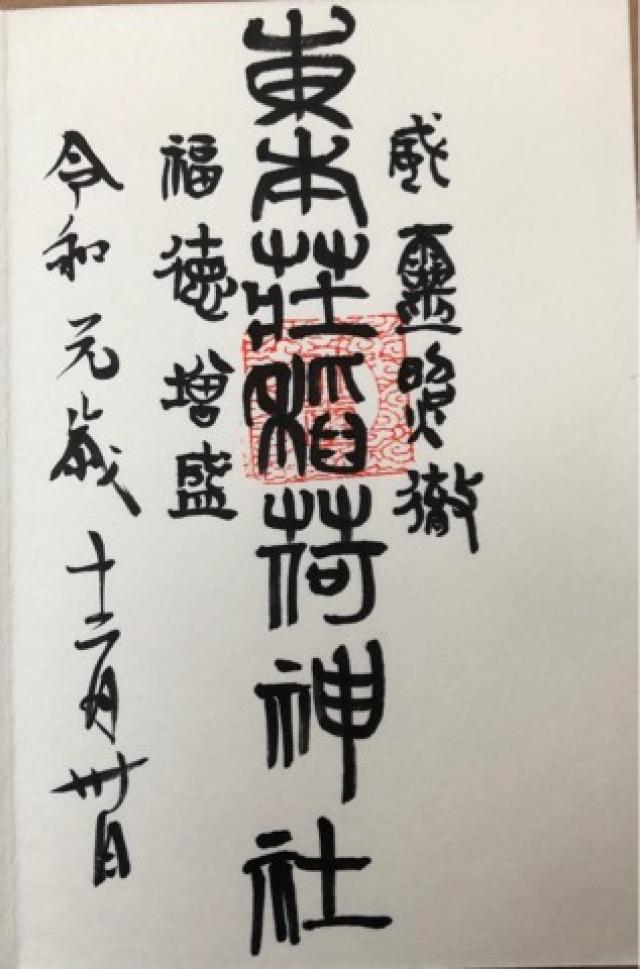 威靈照徹
東本莊稻荷神社
福徳増盛
令和元歳十二月卅日